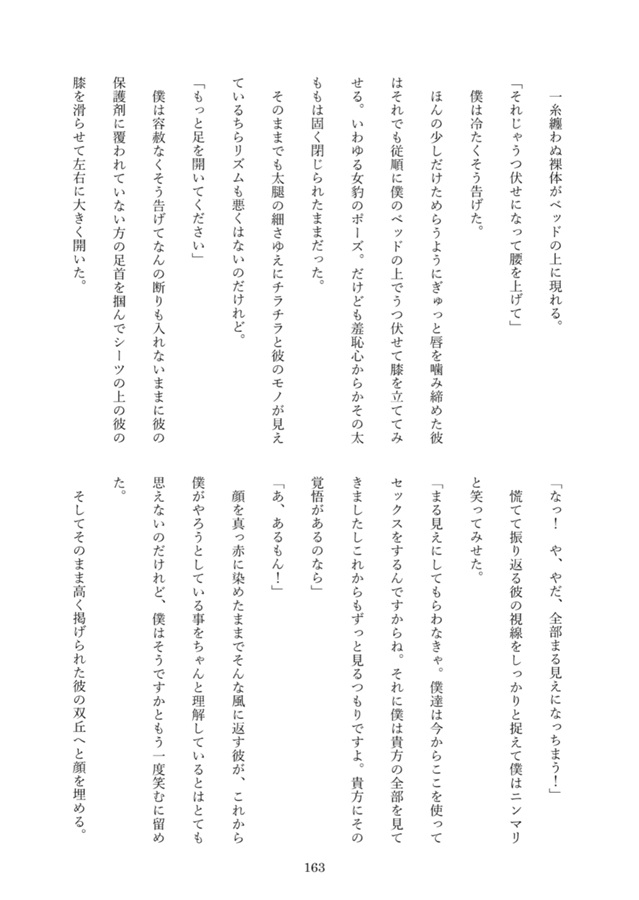 一糸纏わぬ裸体がベッドの上に現れる。
「それじゃうつ伏せになって腰を上げて」
僕は冷たくそう告げた。
ほんの少しだけためらうようにぎゅっと唇を噛み締めた彼
はそれでも従順に僕のベッドの上でうつ伏せて膝を立ててみ
せる。いわゆる女豹のポーズ。だけども羞恥心からかその太
ももは固く閉じられたままだった。
そのままでも太腿の細さゆえにチラチラと彼のモノが見え
ているちらリズムも悪くはないのだけれど。
「もっと足を開いてください」
僕は容赦なくそう告げてなんの断りも入れないままに彼の
保護剤に覆われていない方の足首を掴んでシーツの上の彼の
膝を滑らせて左右に大きく開いた。
「なっ!　や、やだ、全部まる見えになっちまう!」
慌てて振り返る彼の視線をしっかりと捉えて僕はニンマリ
と笑ってみせた。
「まる見えにしてもらわなきゃ。僕達は今からここを使って
セックスをするんですからね。それに僕は貴方の全部を見て
きましたしこれからもずっと見るつもりですよ。貴方にその
覚悟があるのなら」
「あ、あるもん!」
顔を真っ赤に染めたままでそんな風に返す彼が、これから
僕がやろうとしている事をちゃんと理解しているとはとても
思えないのだけれど、僕はそうですかともう一度笑むに留め
た。
そしてそのまま高く掲げられた彼の双丘へと顔を埋める。
163